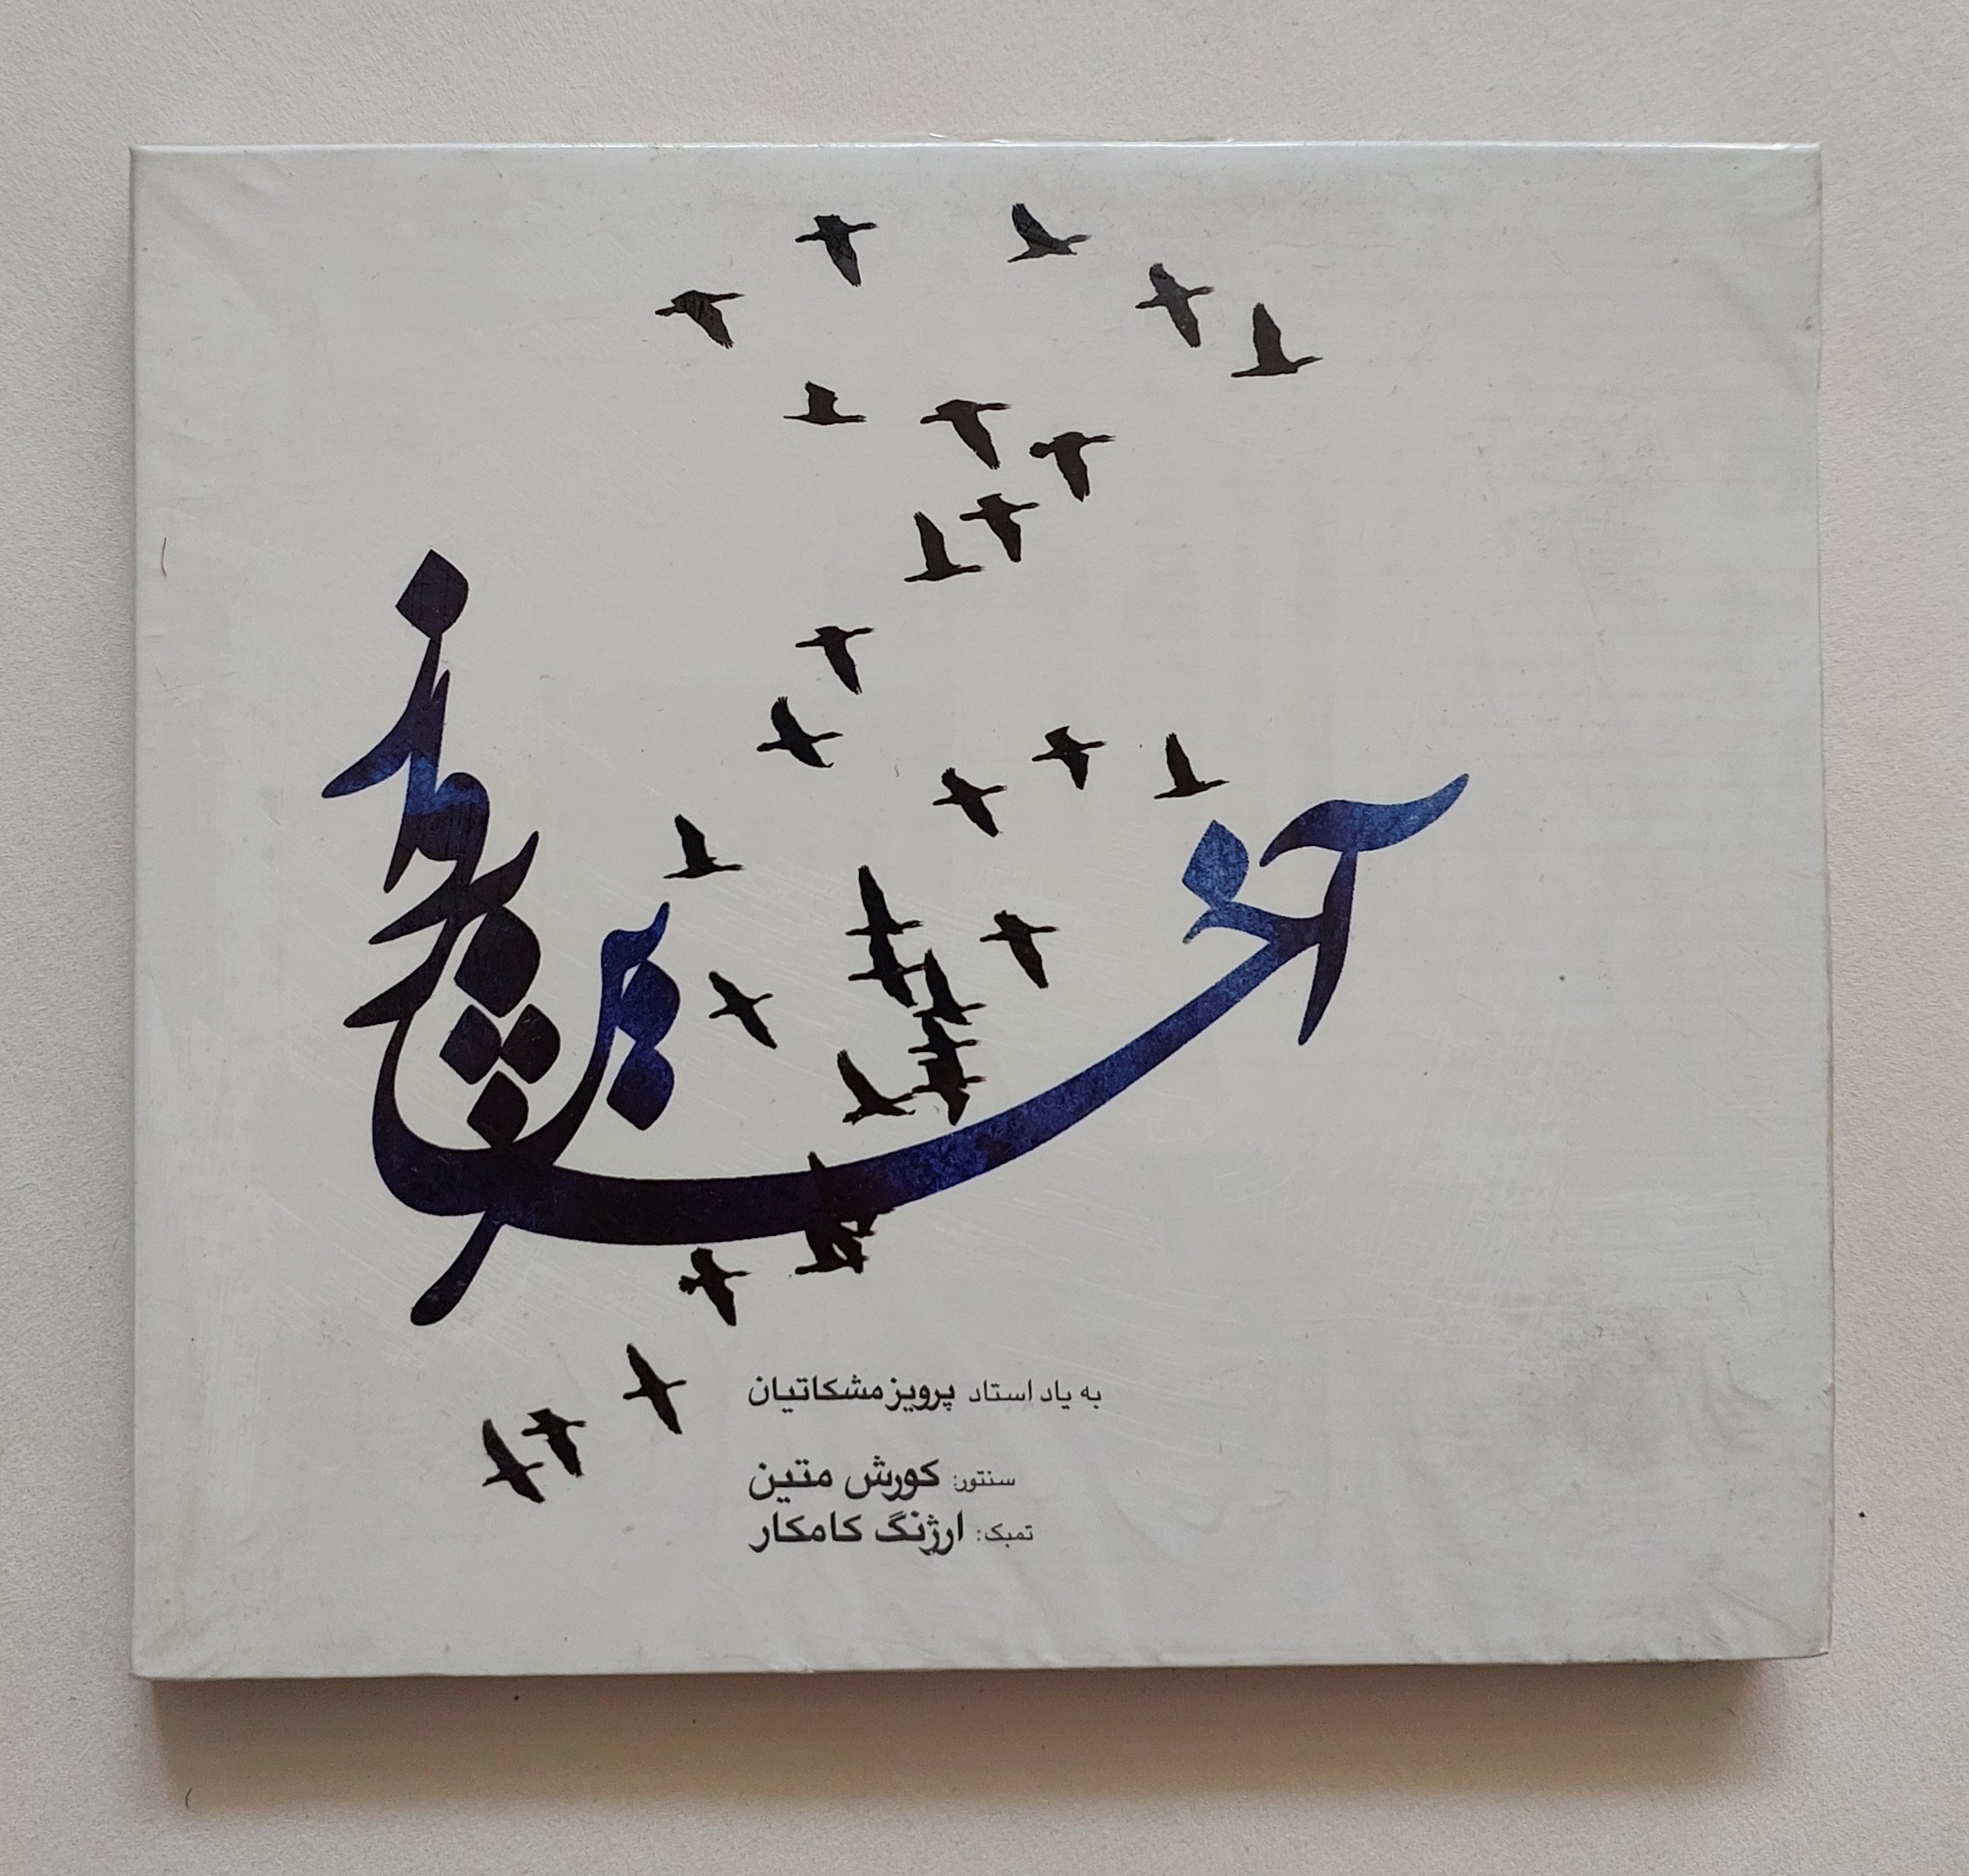 آخرین پرواز
به یاد استاد پرویز مشکاتیان
سنتور: کورش متین
تمبک: ارژنگ کامکار